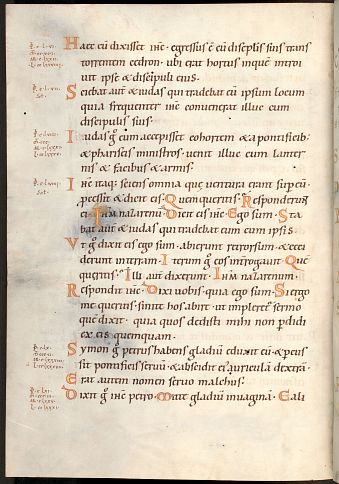 Haec cū dixisset ihc · egressus ē cū discipulis suis trans
torrentem cedron · ubi erat hortus inquē introi
uit ipse & discipuli eius ·
Sciebat autē & iudas qui tradebat eū ipsum locum
quia frequenter ihc conuenerat illuc cum
discipulis suis ·
Iudas g cum accepisset cohortem & a pontificib;
& phariseis ministros · uenit illuc cum lanter
nis & facibus & armis ·
Ihc itaq; sciens omnia quę uentura erant sup eū ·
pcessit & dicit eis · Quem queritis · Responderunt
ei · Ihm nazarenū · Dicit eis ihc · Ego sum · Sta
bat autē & iudas qui tradebat eum cum ipsis ·
Vt g dixit eis ego sum · abierunt retrorsum · & ceci
derunt in terram · Iterum g eos interrogauit · Quē
queritis · Illi autē dixerunt · Ihm nazarenum ·
Respondit ihc · Dixi uobis · quia ego sum · Si ergo
me queritis · sinite hos abire · ut impleret sermo
quē dixit · quia quos dedisti mihi non pdidi
ex eis quemquam ·
Symon g petrus habens gladiū eduxit eū · & pcus
sit pontificis seruū · & abscidit ei auriculā dexterā ·
Erat autem nomen seruo malchus ·
Dixit g ihc petro · Mitte gladiū in uaginā · Cali